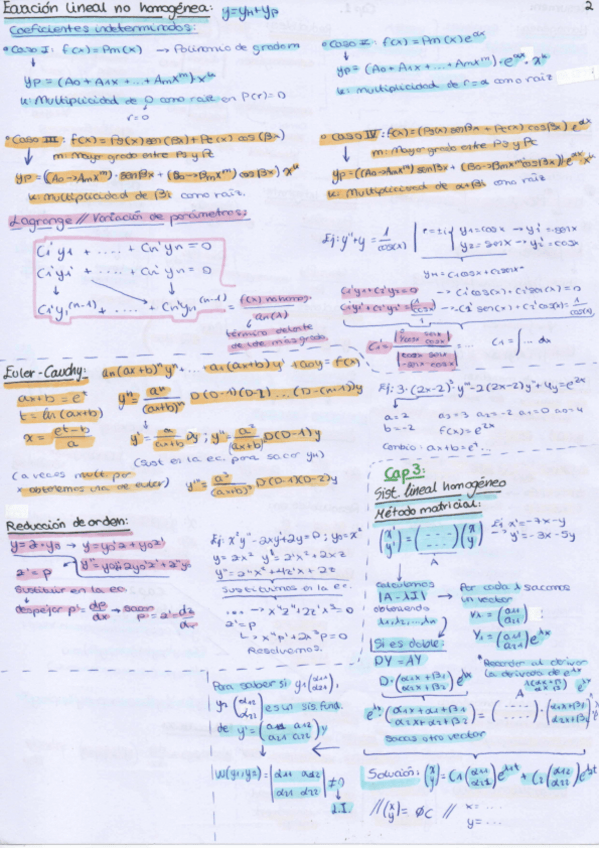 Ecuación lineal no homogénea: y=yH+yp
2
Coeficientes indeterminados:
• Caso I: f(x)=Pm(x) → Polinomio de grado m
yp=(A0+A1x+...+Amx^m)·x^k
k: Multiplicidad de 0 como raíz en P(r)=0
r=0
• Caso II: f(x)=Pm(x)e^αx
yp=(A0+A1x+...+Amx^m)·e^αx·x^k
k: multiplicidad de r=α como raíz
• Caso III: f(x)=Ps(x)sen(βx)+Pt(x)cos(βx)
m: Mayor grado entre Ps y Pt
yp=((A0→Amx^m)·senβx+(B0→Bmx^m)cosβx)x^k
k: Multiplicidad de βi como raíz.
• Caso IV: f(x)=(Ps(x)senβx+Pt(x)cosβx)e^αx
m: Mayor grado entre Ps y Pt
yp=((A0→Amx^m)senβx+(B0→Bmx^m cosβx))e^αx·x^k
k: Multiplicidad de α+βi como raíz
Lagrange // Variación de parámetros:
C1'y1+....+Cn'yn=0
C1'y1'+....+Cn'yn'=0
C1'y1^(n-1)+....+Cn'yn^(n-1) = f(x) no homog. / an(x)
término delante de la de más grado
Ej: y''+y=1/cos(x)
r=±i
y1=cosx → y1'=-senx
y2=senx → y2'=cosx
yH=C1cosx+C2senx
C1'y1+C2'y2=0 → C1'cos(x)+C2'sen(x)=0
C1'y1'+C2'y2'=1/cosx → -C1'sen(x)+C2'cos(x)=1/cos(x)
C1'= ... C1=∫... dx
Euler-Cauchy: an(ax+b)^n y^n ... a1(ax+b)y'+a0y=f(x)
ax+b=e^t
t=ln(ax+b)
x=(e^t-b)/a
y^n=a^n/(ax+b)^n D(D-1)(D-2)...(D-(n-1))y
y'=a/(ax+b) Dy; y''=a²/(ax+b)² D(D-1)y
(Sust en la ec. para sacar yH)
(a veces mult por x obtenemos una de euler)
y'''=a³/(ax+b)³ D(D-1)(D-2)y
Ej: 3·(2x-2)³y'''-2(2x-2)y'+4y=e^2x
a=2 a3=3 a2=-2 a1=0 a0=4
b=-2 f(x)=e^2x
Cambio: ax+b=e^t...
Reducción de orden:
y=z·y0 → y'=y0z'+y0'z
z'=p y''=y0z''+2y0'z'+y0''z
Sustituir en la ec
despejar p'=dp/dx → sacar p=z'=dz/dx
Ej: x²y''-2xy'+2y=0; y0=x²
y=zx² y'=z'x²+2xz
y''=z''x²+4z'x+2z
Sustituimos en la ec.
... → x⁴z''+2z'x³=0
z'=p
↳ x⁴p'+2x³p=0
Resolvemos.
Cap 3:
Sist lineal homogéneo
Método matricial:
(x' y')=(...... ......)(x y)
A
Ej: x'=-7x-y
y'=-3x-5y
calculamos |A-λI|
obteniendo λ1, λ2, ..., λn
Por cada λ sacamos un vector
V1=(a11 a21)
Y1=(a11 a21)e^λx
Si es doble:
DY=AY
* Recordar al derivar la derivada de e^λx
D·(α1x+β1 α2x+β2)e^λx
e^λx(α1x+α1+β1 α2x+α2+β2)=(..... .....)·(α1x+β1 α2x+β2)e^λx
A
sacas otro vector
Solución: (x y)=C1(α11 α21)e^λ1t+C2(α12 α22)e^λ2t
//(x y)=ØC // x=...
y=...
Para saber si y1(α11 α21),
y2(α12 α22) es un sis. fund.
de y'=(a11 a12 a21 a22)y
W(y1,y2)=|α11 α12 α21 α22|≠0
L.I.